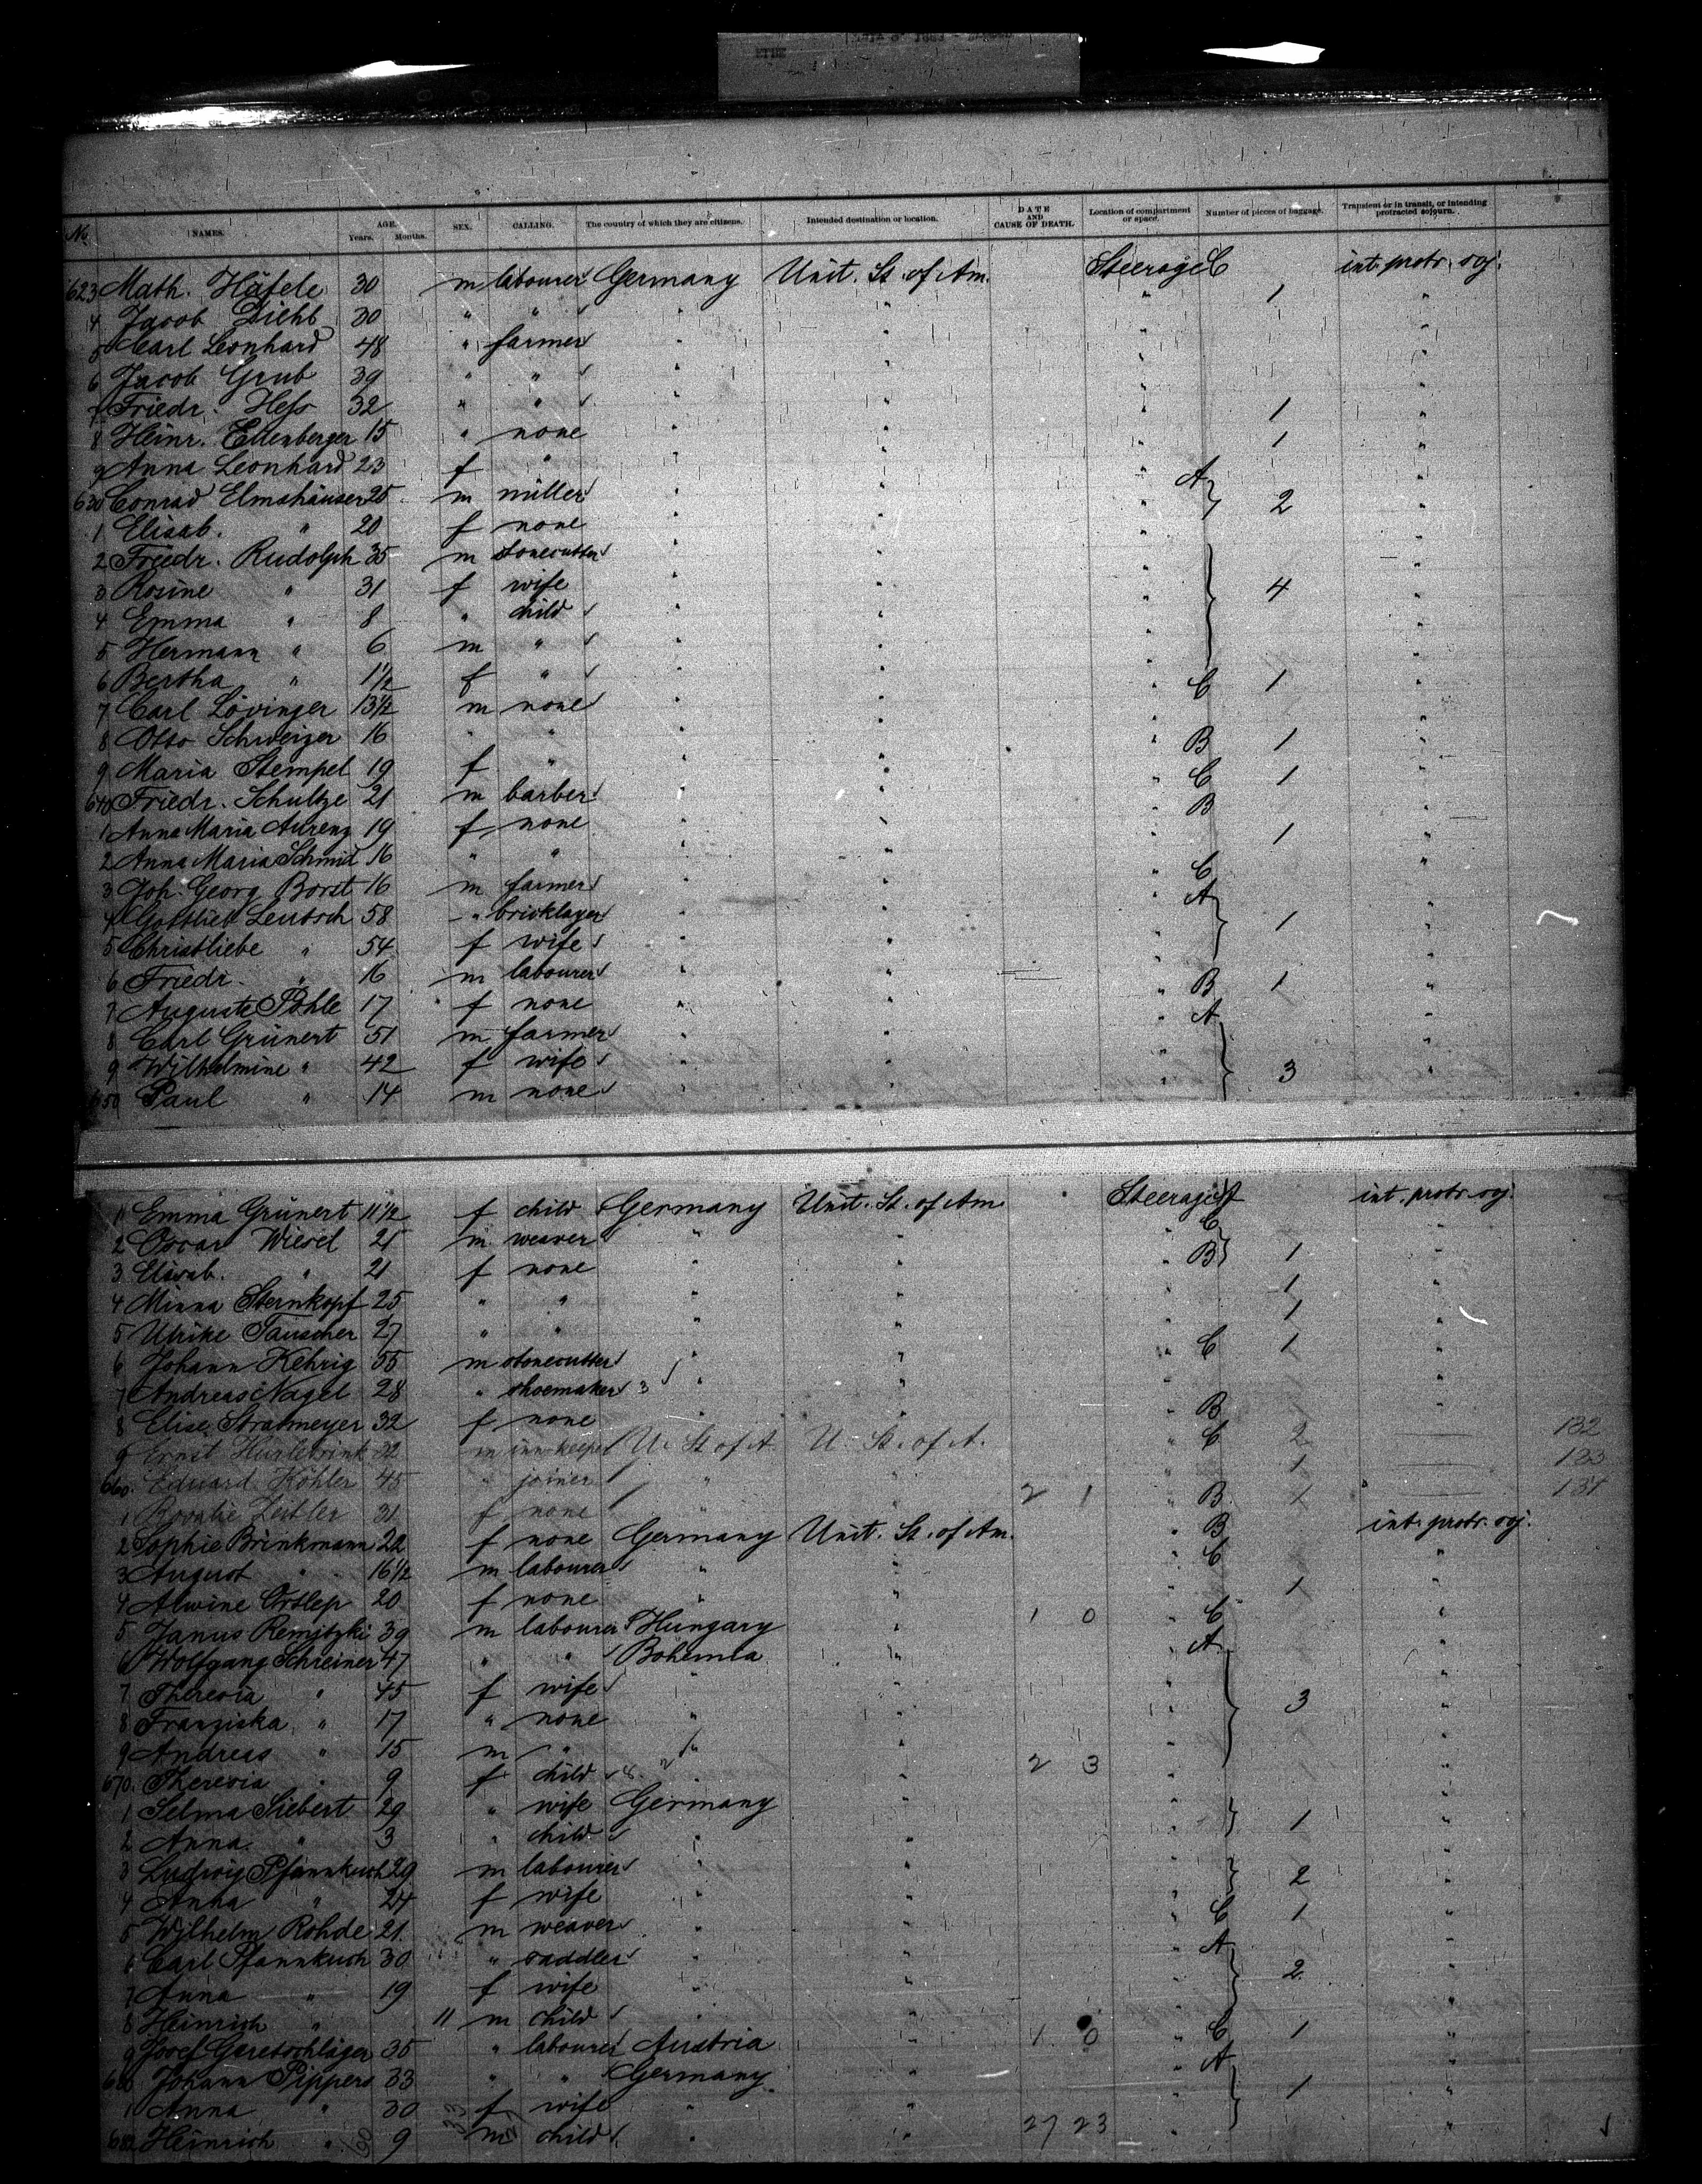 No. NAMES. AGE. Years. Months. SEX. CALLING. The country of which they are citizens. Intended destination or location. DATE AND CAUSE OF DEATH. Location of compartment or space. Number of pieces of baggage. Transient or in transit, or intending protracted sojourn.
623 Math. Häfele 30 m labourer Germany Unit. St. of Am. Steerage C 1 int. protr. soj.
4 Jacob Diehl 30 " " " " " "
5 Carl Leonhard 48 " farmer " " "
6 Jacob Grub 39 " " " " "
7 Friedr. Hess 32 " " " " " 1 "
8 Heinr. Ellenberger 15 " none " " " 1 "
9 Anna Leonhard 23 f " " " " "
630 Conrad Elmshäuser 25 m miller " " " A 2 "
1 Elisab. " 20 f none " " " "
2 Friedr. Rudolph 35 m stonecutter " " " "
3 Rosine " 31 f wife " " " 4 "
4 Emma " 8 " child " " " "
5 Hermann " 6 m " " " " "
6 Bertha " 1 1/2 f " " " " "
7 Carl Lövinger 13 1/2 m none " " " C 1 "
8 Otto Schweizer 16 " " " " " "
9 Maria Stempel 19 f " " " " B 1 "
640 Friedr. Schultze 21 m barber " " " C 1 "
1 Anna Maria Aurenz 19 f none " " " B "
2 Anna Maria Schmid 16 " " " " " 1 "
3 Joh. Georg Borst 16 m farmer " " " C "
4 Gottlieb Leutsch 58 " bricklayer " " " A "
5 Christliebe " 54 f wife " " " 1 "
6 Friedr. " 16 m labourer " " " "
7 Auguste Pöhle 17 f none " " " B 1 "
8 Carl Grünert 51 m farmer " " " A "
9 Wilhelmine " 42 f wife " " " 3 "
650 Paul " 14 m none " " "
1 Emma Grünert 11 1/2 f child Germany Unit. St. of Am. Steerage A int. protr. soj.
2 Oscar Wiesel 21 m weaver " " " C "
3 Elisab. " 21 f none " " " B 1 "
4 Minna Sternkopf 25 " " " " " 1 "
5 Ulrike Tauscher 27 " " " " " 1 "
6 Johann Kehrig 55 m stonecutter " " " C 1 "
7 Andreas Nagel 28 " shoemaker 3 " " " "
8 Elise Stratmeyer 32 f none " " " B "
9 Ernst Hurlebrink 32 m inn-keeper U. St. of A. U. St. of A. " C 2 132
660. Eduard Köhler 45 " joiner " " 1 133
1 Rosalie Zeitler 31 f none " 2 1 " B 1 " 131
2 Sophie Brinkmann 22 f none Germany Unit. St. of Am. " B int. protr. soj.
3 August " 16 1/2 m labourer " " " C "
4 Alwine Ortlep 20 f none " " 1 "
5 Janus Remitzki 39 m labourer Hungary " 1 0 " C "
6 Wolfgang Schreiner 47 " " Bohemia " " A "
7 Theresia " 45 f wife " " " "
8 Franziska " 17 " none " " " 3 "
9 Andreas " 15 m " " " " "
670. Theresia " 9 f child " " 2 3 " "
1 Selma Siebert 29 " wife Germany " " "
2 Anna " 3 " child " " " 1 "
3 Ludwig Pfannkuch 29 m labourer " " " "
4 Anna " 24 f wife " " " 2 "
5 Wilhelm Rohde 21 m weaver " " " C 1 "
6 Carl Pfannkuch 30 " saddler " " " A "
7 Anna " 19 f wife " " " 2 "
8 Heinrich " 11 m child " " " "
9 Josef Garetschläger 35 " labourer Austria " 1 0 " C 1 "
680 Johann Pippers 33 " " Germany " " A "
1 Anna " 30 f wife " " 1 "
682 Heinrich " 9 m child " " 27 23 "